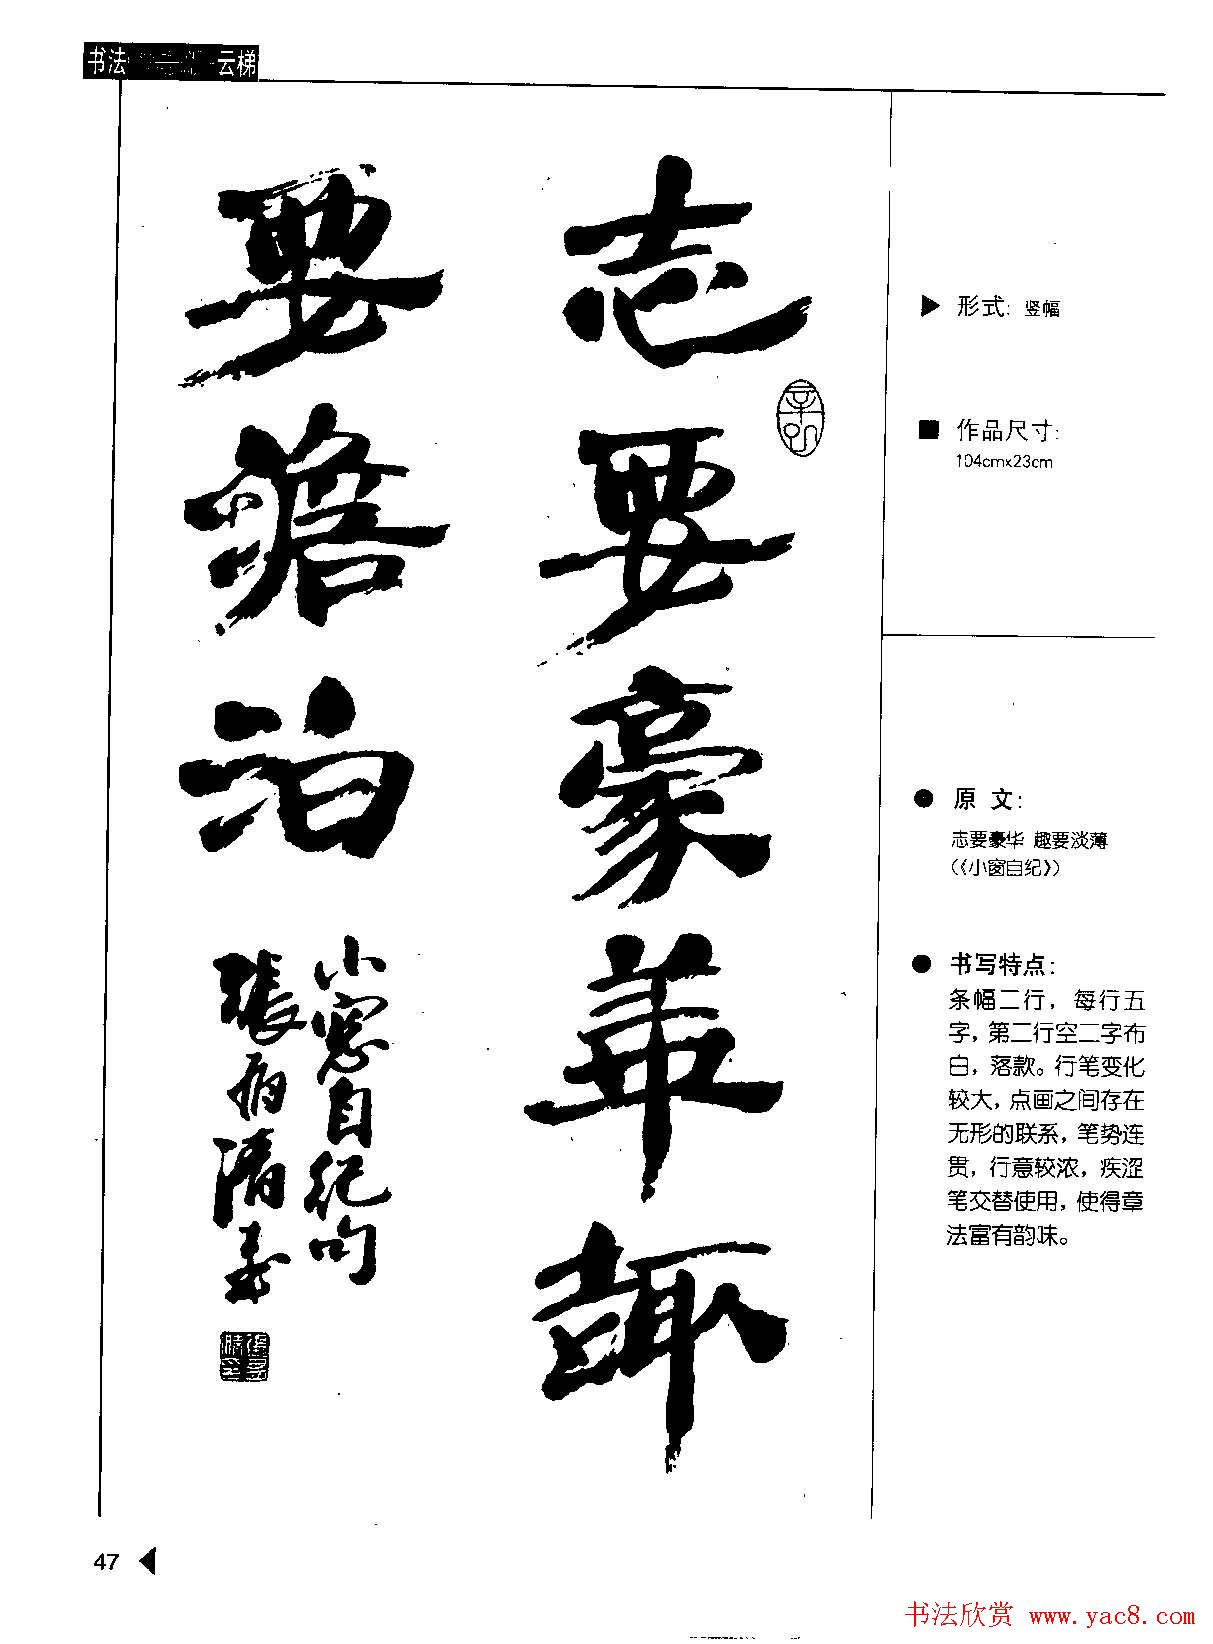 书法 云梯
志要豪華趣
要澹泊
小窓自纪句
張炳清書
▶ 形式: 竖幅
■ 作品尺寸:
104cmx23cm
● 原 文:
志要豪华 趣要淡薄
(《小窗自纪》)
● 书写特点:
条幅二行，每行五
字，第二行空二字布
白，落款。行笔变化
较大，点画之间存在
无形的联系，笔势连
贯，行意较浓，疾涩
笔交替使用，使得章
法富有韵味。
47
书法欣赏 www.yac8.com